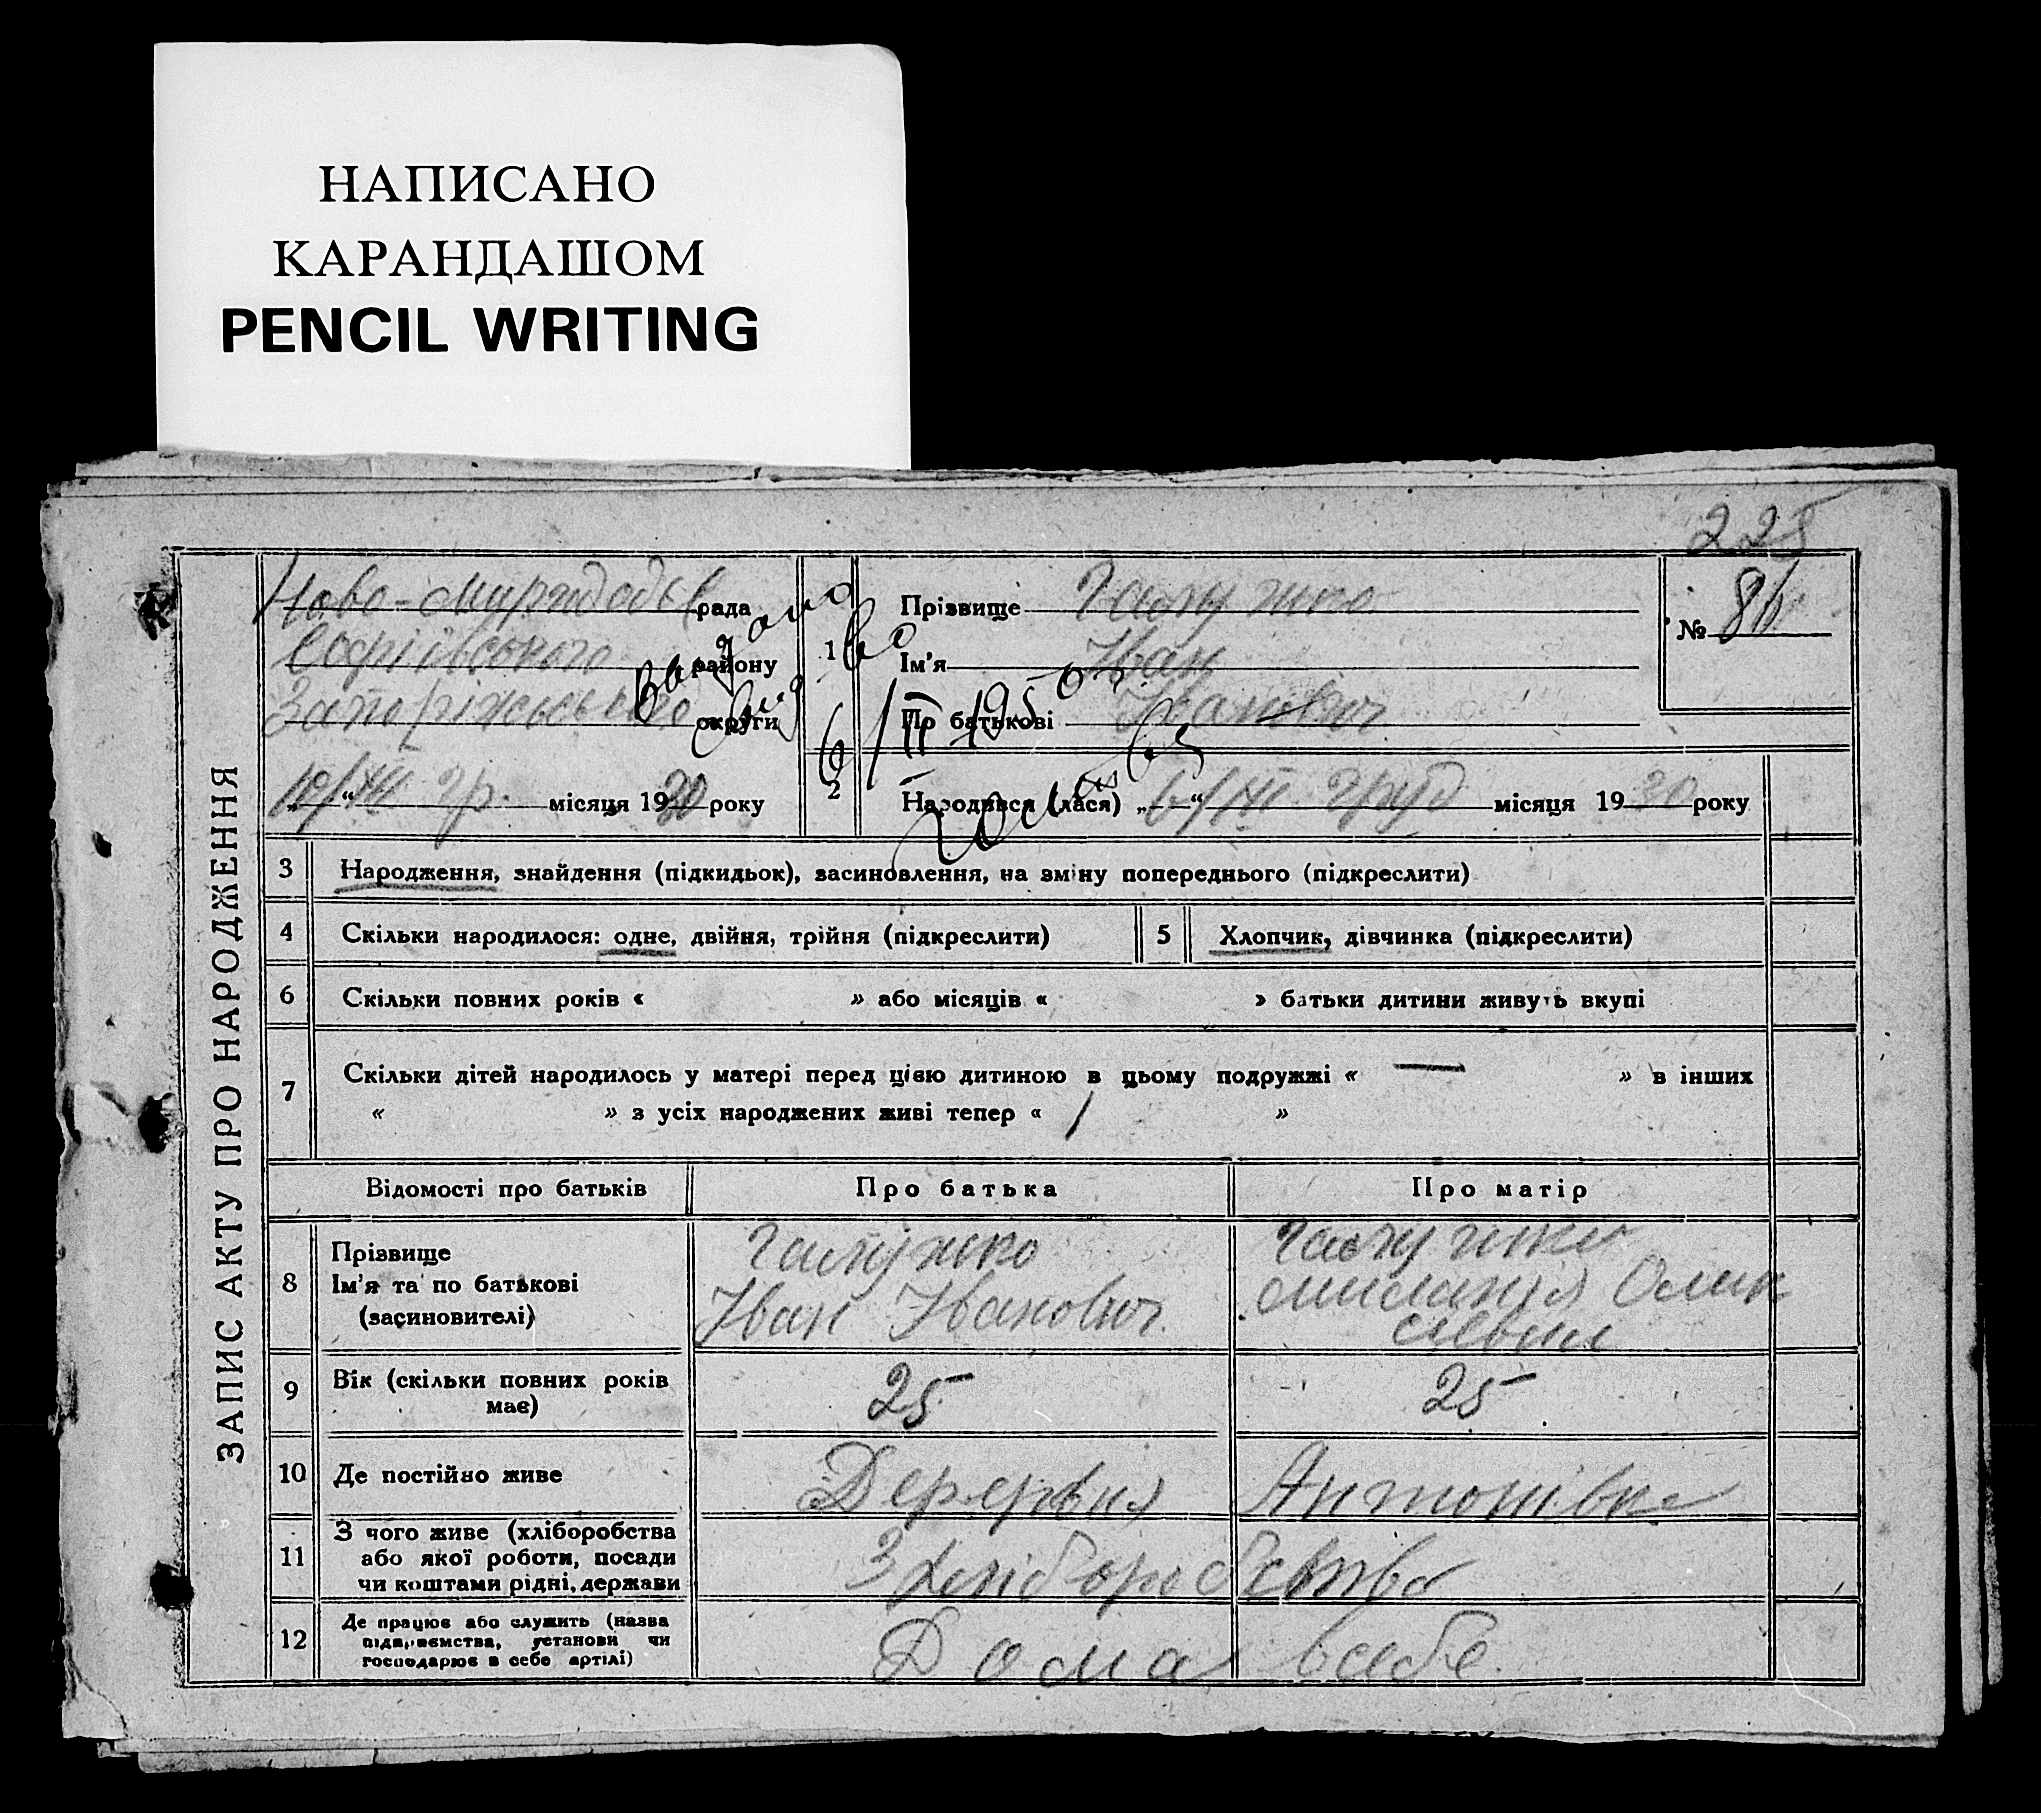 НАПИСАНО
КАРАНДАШОМ
PENCIL WRITING
225
ЗАПИС АКТУ ПРО НАРОДЖЕННЯ
рада
Софіївського району
Запоріжського округи
10/XII гр. місяця 1930 року
1 Прізвище
Ім'я Іван
По батькові Іванович
№ 86
2 Народився (лася) „6/XII“ груд місяця 1930 року
3 Народження, знайдення (підкидьок), засиновлення, на зміну попереднього (підкреслити)
4 Скільки народилося: одне, двійня, трійня (підкреслити) 5 Хлопчик, дівчинка (підкреслити)
6 Скільки повних років « » або місяців « » батьки дитини живуть вкупі
7 Скільки дітей народилось у матері перед цією дитиною в цьому подружжі « — » в інших
« » з усіх народжених живі тепер « 1 »
Відомості про батьків Про батька Про матір
8 Прізвище
Ім'я та по батькові Іван Іванович
(засиновителі)
9 Вік (скільки повних років 25 25
має)
10 Де постійно живе Деревня Антонівка
11 З чого живе (хліборобства
або якої роботи, посади З хліборобства
чи коштами рідні, держави
12 Де працює або служить (назва
підприємства, установи чи Дома всебе
господарює в себе артілі)